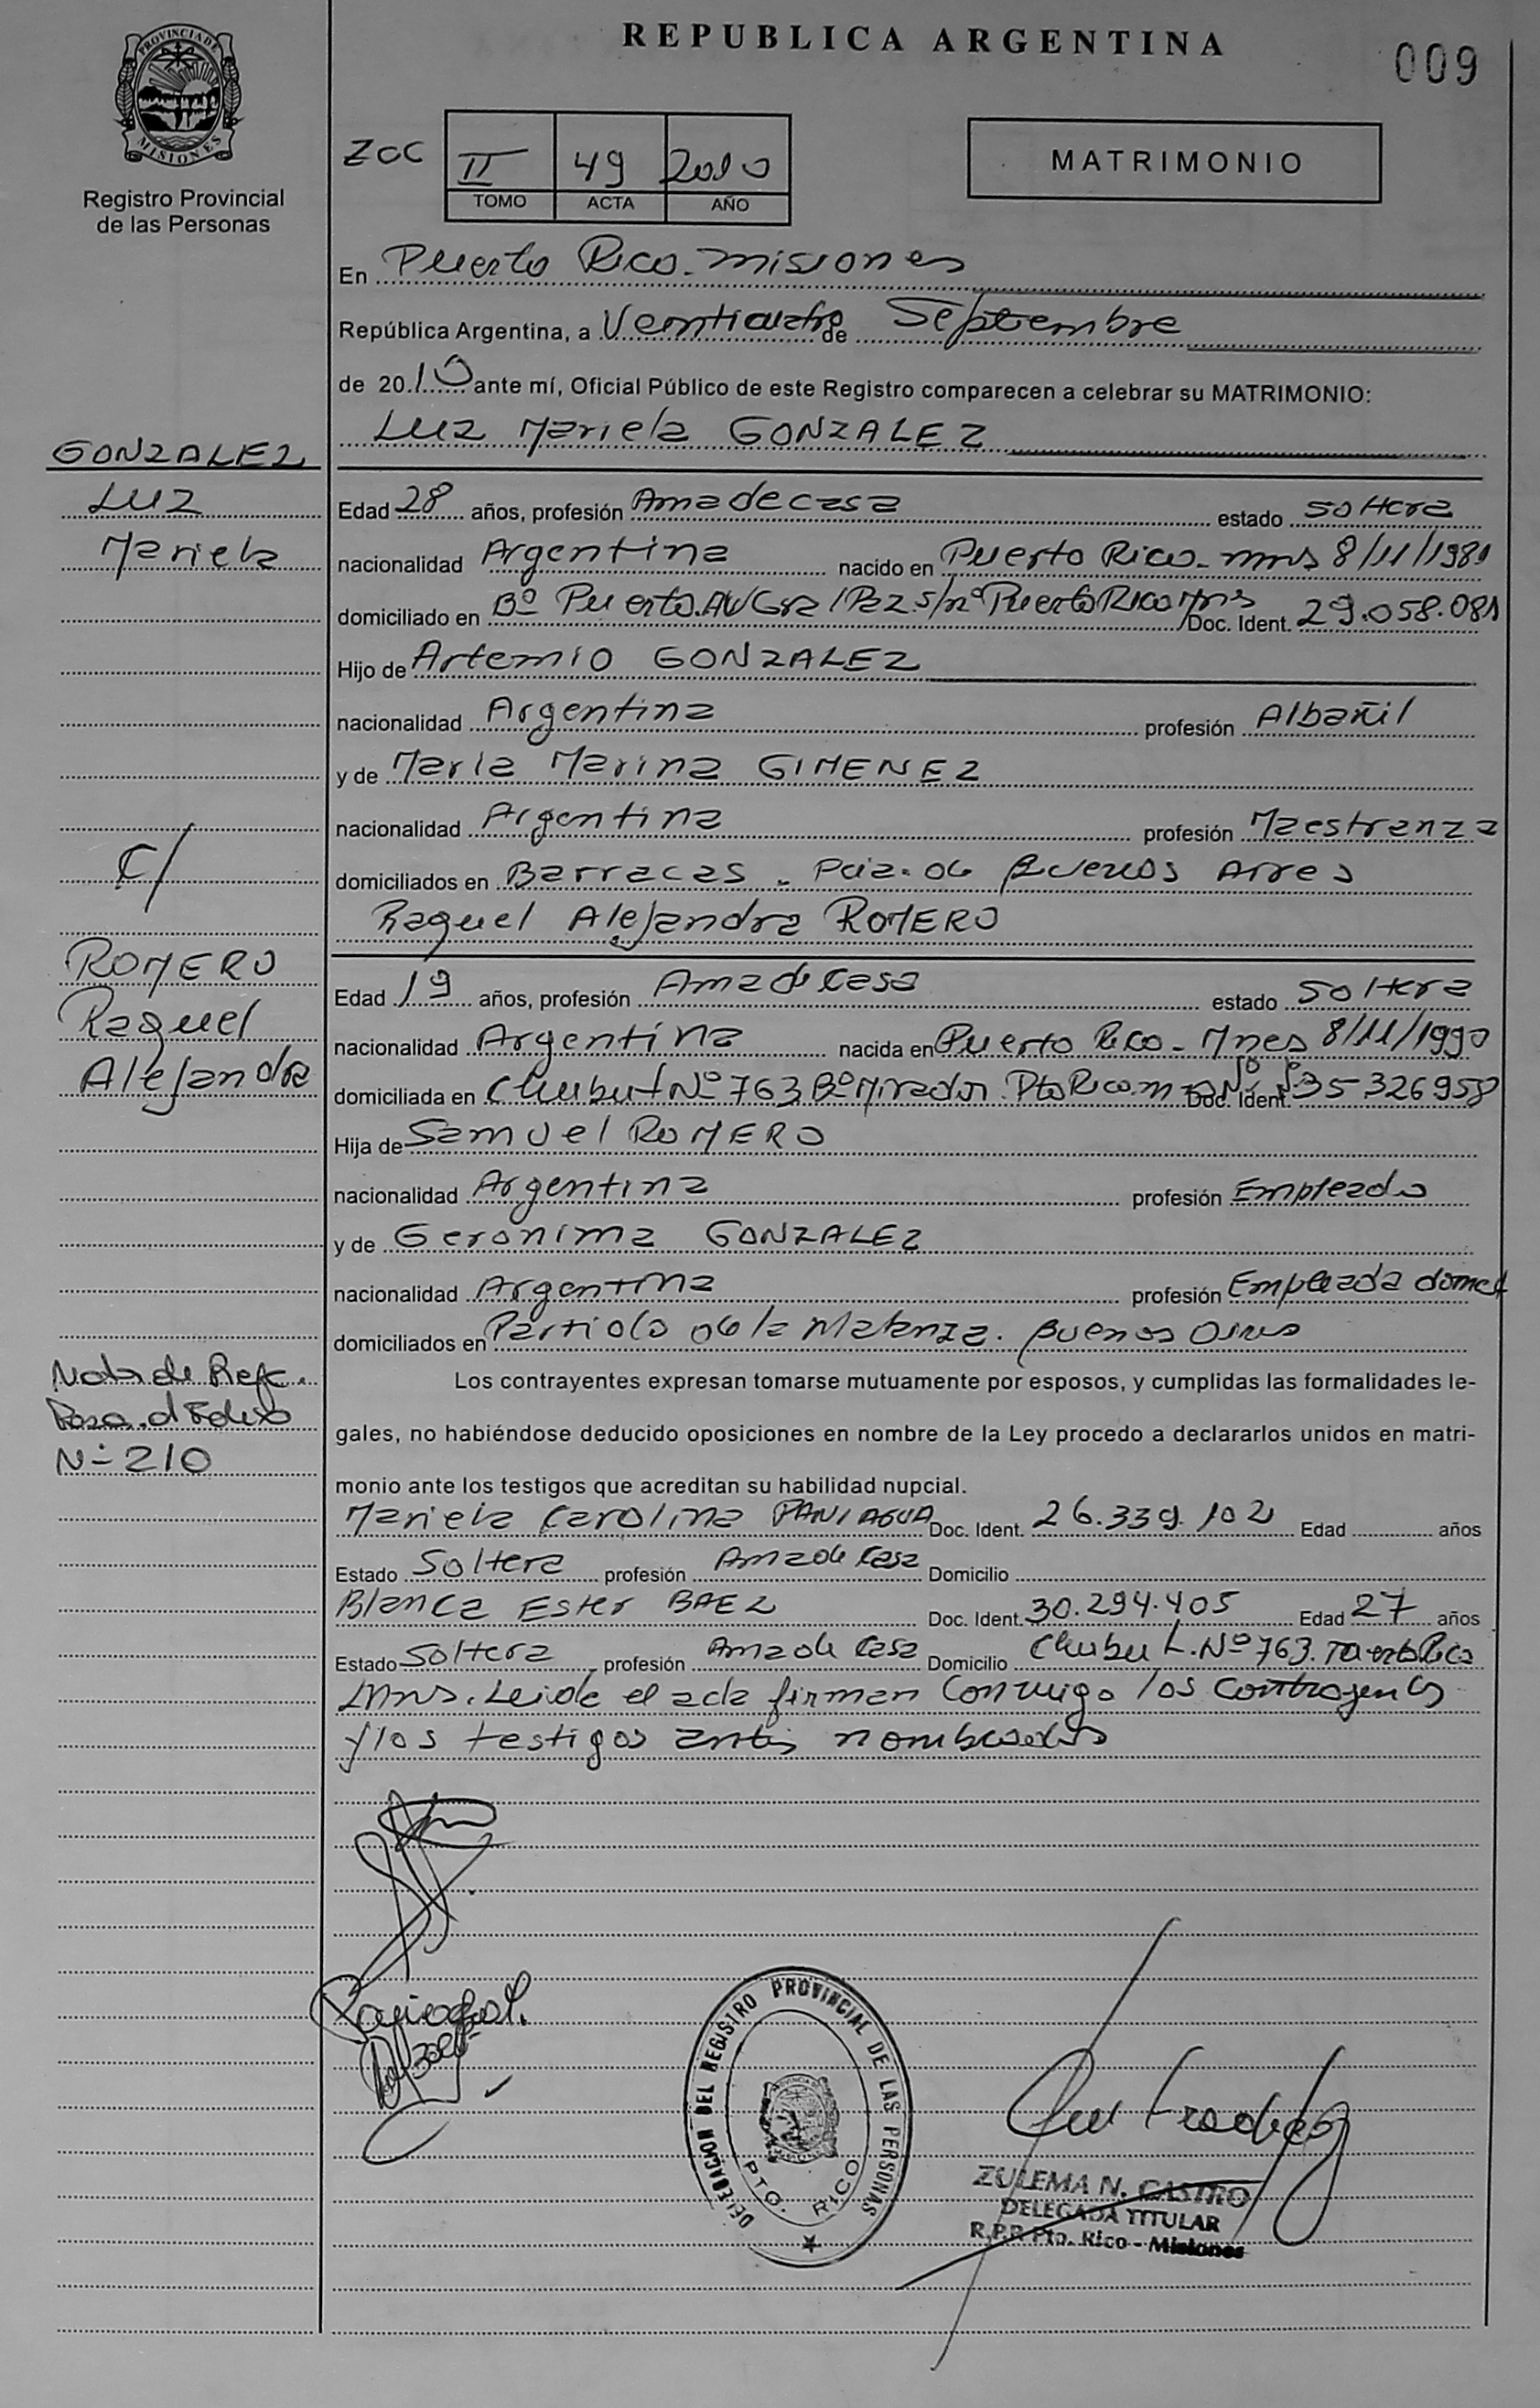 REPUBLICA ARGENTINA
009
PROVINCIA DE
MISIONES
Registro Provincial
de las Personas
ZOC
II 49 2010
TOMO ACTA AÑO
MATRIMONIO
En Puerto Rico. misiones
República Argentina, a Veinticuatro de Septiembre
de 2010 ante mí, Oficial Público de este Registro comparecen a celebrar su MATRIMONIO:
Luz Mariela GONZALEZ
GONZALEZ
Luz
Mariela
Edad 28 años, profesión Ama de casa estado soltera
nacionalidad Argentina nacido en Puerto Rico. mns 8/11/1981
domiciliado en Bº Puerto. AV Gral Paz s/nº Puerto Rico Mns Doc. Ident. 29.058.081
Hijo de Artemio GONZALEZ
nacionalidad Argentina profesión Albañil
y de Maria Marina GIMENEZ
nacionalidad Argentina profesión Maestranza
C/
domiciliados en Barracas. Pcia. de Buenos Aires
Raquel Alejandra ROMERO
ROMERO
Raquel
Alejandra
Edad 19 años, profesión Ama de Casa estado Soltera
nacionalidad Argentina nacida en Puerto Rico - Mnes 8/11/1990
domiciliada en Chubut Nº 763 Bº Mirador. Pto Rico. Doc. Ident. 35 326958
Hija de Samuel ROMERO
nacionalidad Argentina profesión Empleado
y de Geronima GONZALEZ
nacionalidad Argentina profesión Empleada domest
domiciliados en Partido de la Matanza. Buenos Aires
Nota de Refc.
N- 210
Los contrayentes expresan tomarse mutuamente por esposos, y cumplidas las formalidades le-
gales, no habiéndose deducido oposiciones en nombre de la Ley procedo a declararlos unidos en matri-
monio ante los testigos que acreditan su habilidad nupcial.
Mariela Carolina PANIAGUA Doc. Ident. 26.339.102 Edad años
Estado Soltera profesión Ama de Casa Domicilio
Blanca Ester BAEZ Doc. Ident. 30.294.405 Edad 27 años
Estado Soltera profesión Ama de Casa Domicilio Chubut. Nº 763. Puerto Rico
Mns. Leida el acta firman Conmigo los Contrayentes
y los testigos antes nombrados
DELEGACION DEL REGISTRO PROVINCIAL DE LAS PERSONAS
PTO. RICO
ZULEMA N. CASTRO
DELEGADA TITULAR
R.P.P. Pto. Rico - Misiones